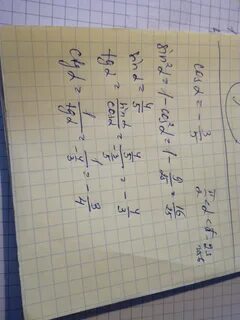 cos α = - 3/5   π/2 < α < π -
sin²α = 1 - cos²α = 1 - 9/25 = 16/25
sin α = 4/5
tg α = sin α / cos α = 4/5 / -3/5 = - 4/3
ctg α = 1 / tg α = 1 / -4/3 = - 3/4